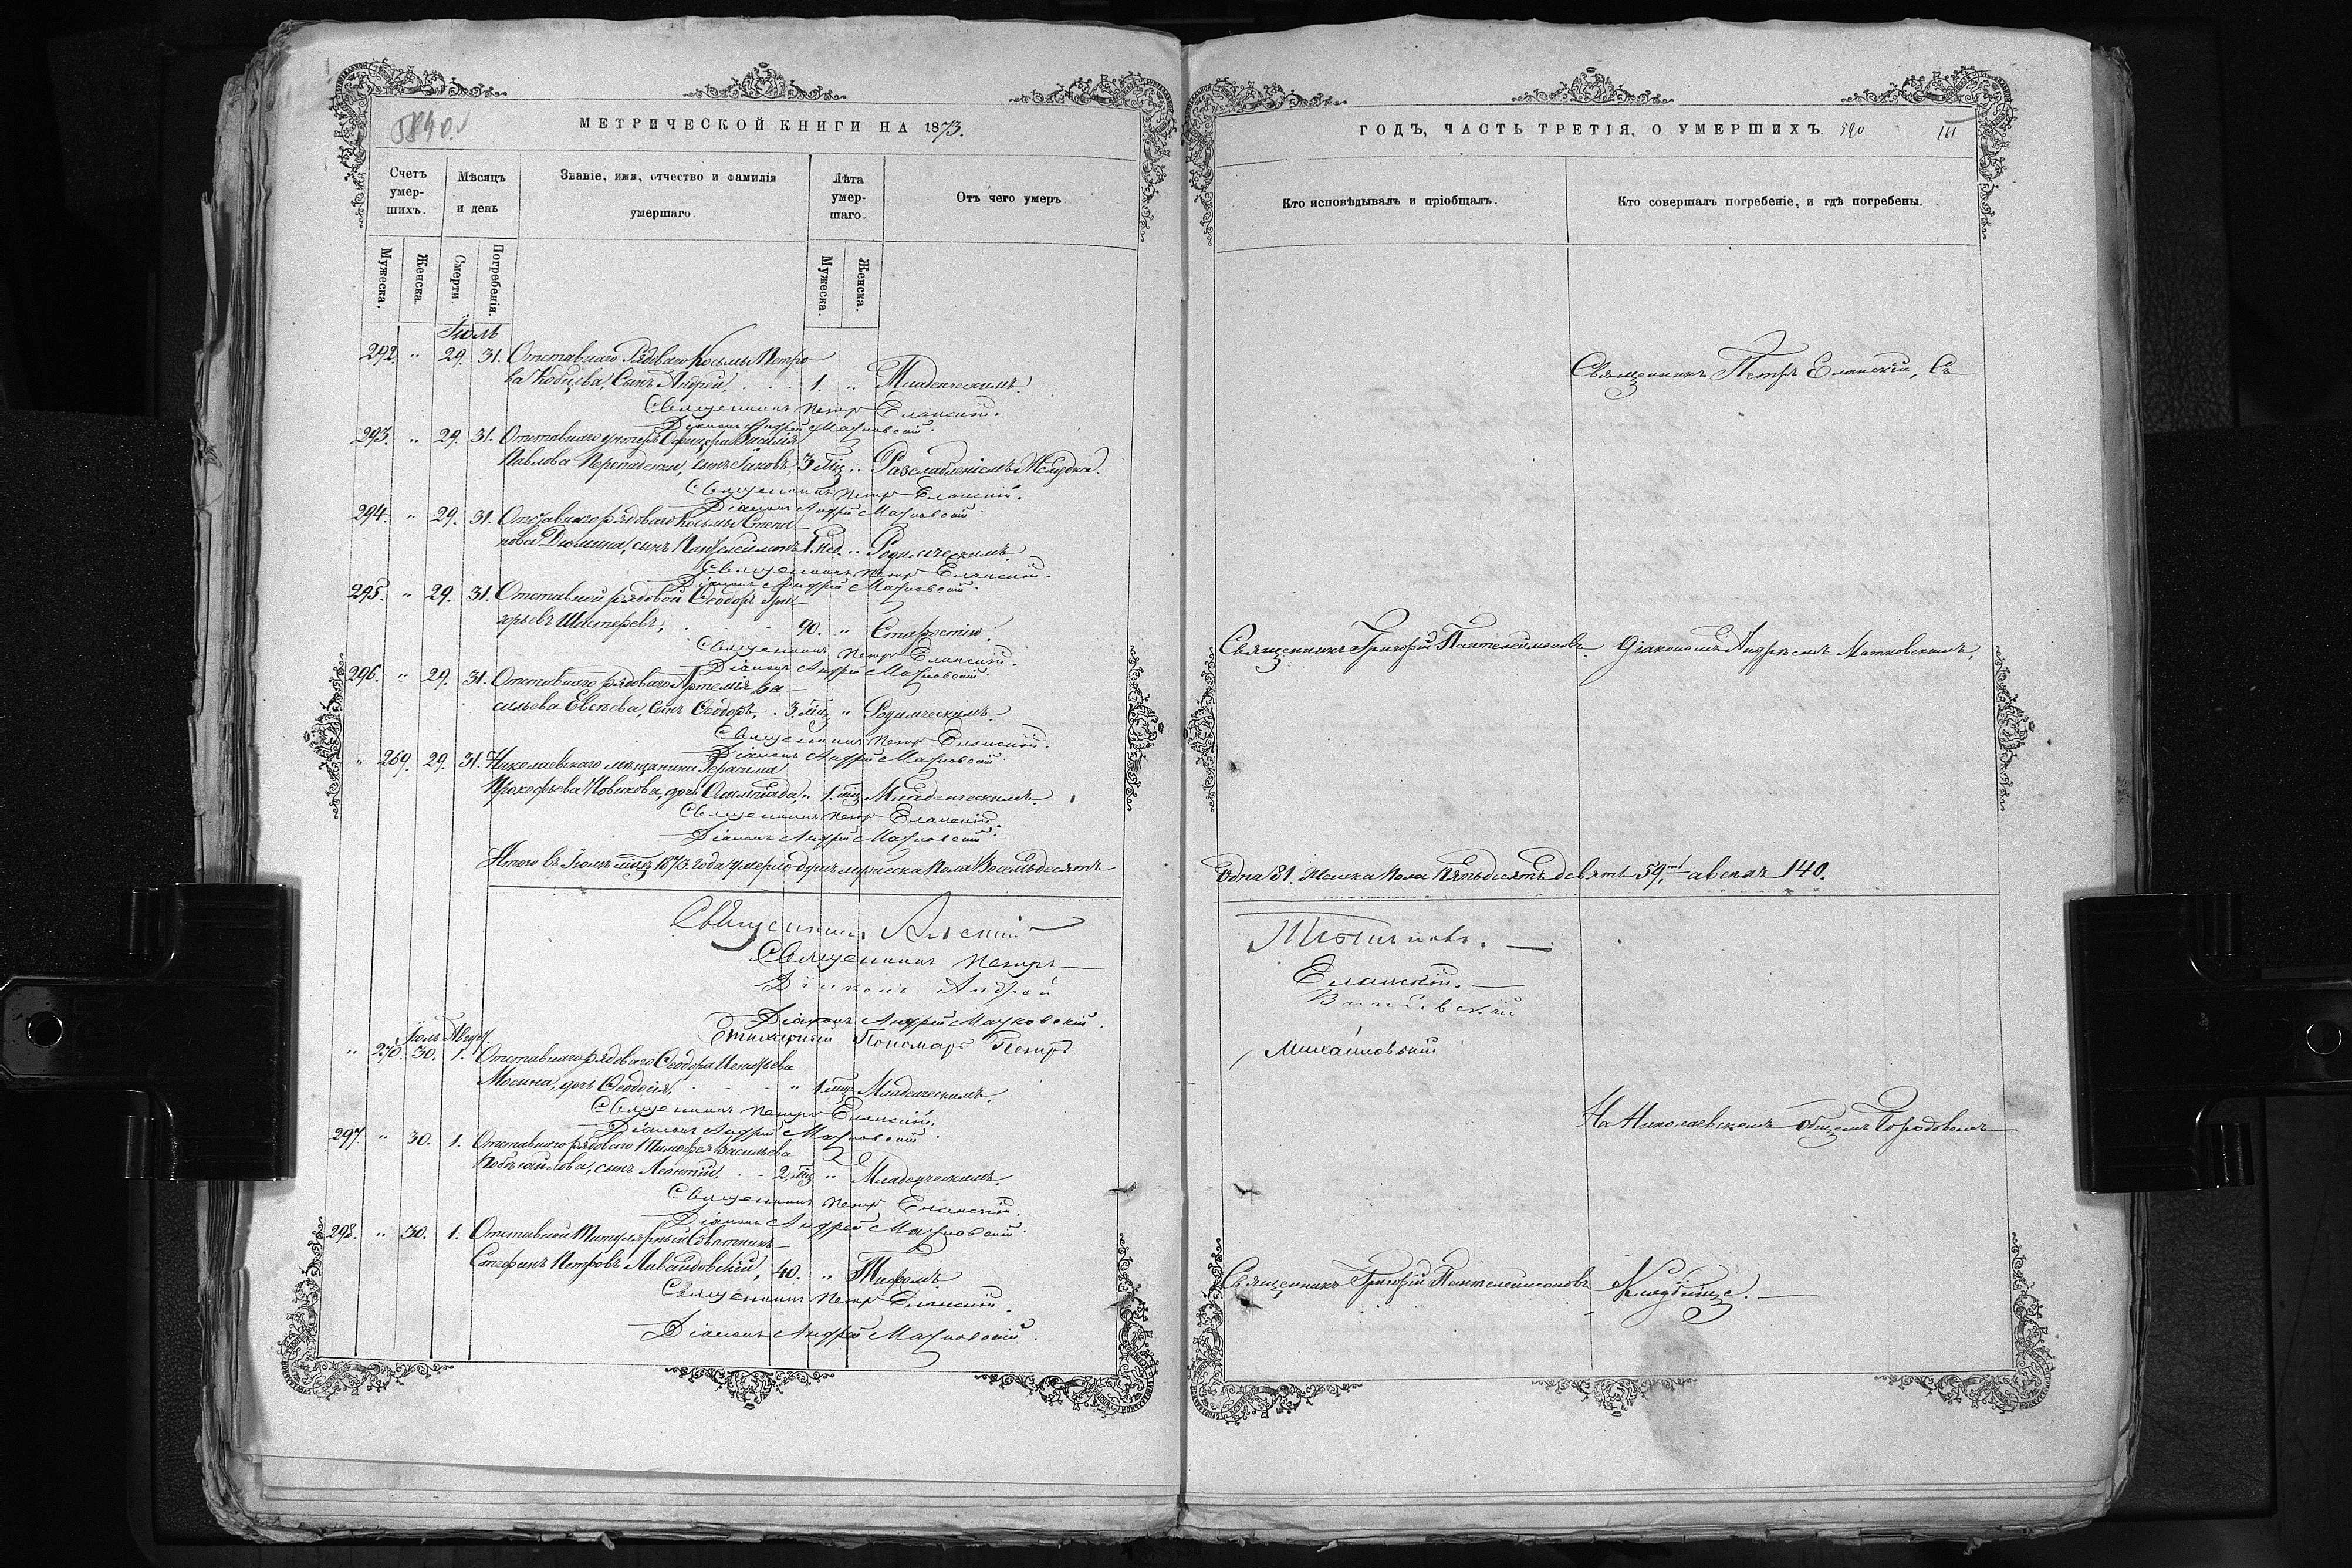 МЕТРИЧЕСКОЙ КНИГИ НА 1873.
Счетъ умер-шихъ.
Мѣсяцъ и день
Званіе, имя, отчество и фамилія умершаго.
Лѣта умер-шаго.
Отъ чего умеръ.
Мужеска.
Женска.
Смерти.
Погребенія.
Мужеска.
Женска.
Іюль
292. " 29. 31. Отставнаго Рядоваго Косьмы Петро
ва Кобцева, Сынъ Андрей, . . . 1. " Младенческимъ.
Священникъ Петръ Еланскій.
Діаконъ Андрей Матковскій.
293. " 29. 31. Отставнаго унтеръ Офицера Василія
Павлова Перепадскаго, сынъ Іаковъ, 3 мц " Разслабленіемъ Желудка.
Священникъ Петръ Еланскій.
Діаконъ Андрей Матковскій
294. " 29. 31. Отставнаго рядоваго Косьмы Степа
нова Дюмина, сынъ Пантелеимонъ 1. нед. " Родимческимъ.
Священникъ Петръ Еланскій.
Діаконъ Андрей Матковскій.
295. " 29. 31. Отставной рядовой Ѳеодоръ Гри
горьевъ Шестеревъ, 90. " Старостію.
Священникъ Петръ Еланскій.
Діаконъ Андрей Матковскій.
296. " 29. 31. Отставнаго рядоваго Артемія Ва-
сильева Евсѣева, Сынъ Ѳеодоръ, . 3. мц " Родимческимъ.
Священникъ Петръ Еланскій.
Діаконъ Андрей Матковскій
" 269. 29. 31. Николаевскаго мѣщанина Герасима
Прокофьева Новикова, дочь Олимпіада, " 1. мц Младенческимъ.
Священникъ Петръ Еланскій.
Діаконъ Андрей Матковскій
Итого въ Іюлѣ мцѣ 1873 года умерло душъ мужеска пола Восемьдесятъ
Священникъ Алексій
Священникъ Петръ
Діаконъ Андрей
Діаконъ Андрей Матковскій.
Стихарный Пономарь Петръ
Іюль Авгус
" 270. 30. 1. Отставнаго рядоваго Ѳеодора
Мосина, дочь Ѳеодосія, " 1. мц Младенческимъ.
Священникъ Петръ Еланскій.
Діаконъ Андрей Матковскій.
297. " 30. 1. Отставнаго рядоваго Тимофея Васильева
сынъ Леонтій, . - 2. мц " Младенческимъ.
Священникъ Петръ Еланскій.
Діаконъ Андрей Матковскій
298. " 30. 1. Отставной Титулярный Совѣтникъ
Стефанъ Петровъ Ливандовскій, 40. " Тифомъ
Священникъ Петръ Еланскій.
Діаконъ Андрей Матковскій.
ГОДЪ, ЧАСТЬ ТРЕТІЯ, О УМЕРШИХЪ. 590
Кто исповѣдывалъ и пріобщалъ.
Кто совершалъ погребеніе, и гдѣ погребены.
Священникъ Петръ Еланскій, Съ
Священникъ Григорій Пантелеимоновъ. Діакономъ Андреемъ Матковскимъ,
Одна 81. Женска пола Пятьдесятъ девять 59, а всѣхъ 140.
Еланскій.
Михайловскій
На Николаевскомъ общемъ Городовомъ
Священникъ Григорій Пантелеимоновъ Кладбищѣ.